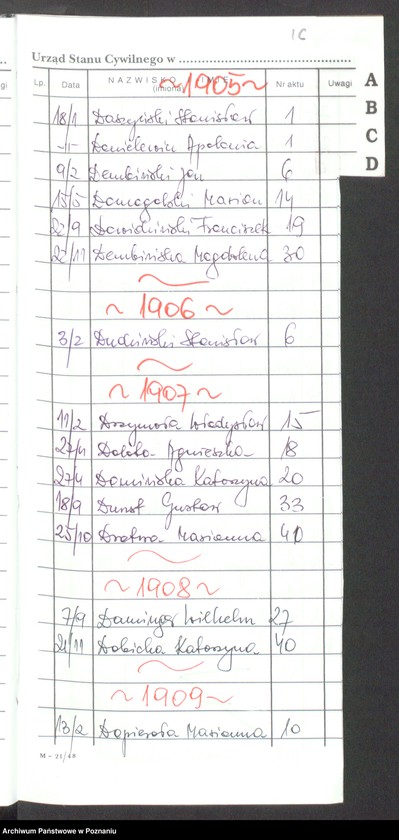 1C
Urząd Stanu Cywilnego w
Lp. Data NAZWISKO IMIĘ (imiona) Nr aktu Uwagi
~1905~
A
B
C
D
18/1 Daszyński Stanisław 1
-"- Danielewicz Apolonia 1
9/2 Dembiński Jan 6
15/5 Domagalski Marian 14
22/9 Franciszek 19
22/11 Dembińska Magdalena 30
~ 1906 ~
3/2 Dudziński Stanisław 6
~ 1907 ~
11/2 Drzymała Władysław 15
27/4 Agnieszka 18
27/4 Domińska Katarzyna 20
18/9 Durst Gustaw 33
25/10 Dratwa Marianna 40
~ 1908 ~
7/9 Daminger Wilhelm 27
21/11 Dobicka Katarzyna 40
~ 1909 ~
13/2 Dopierała Marianna 10
M - 21/48
Archiwum Państwowe w Poznaniu